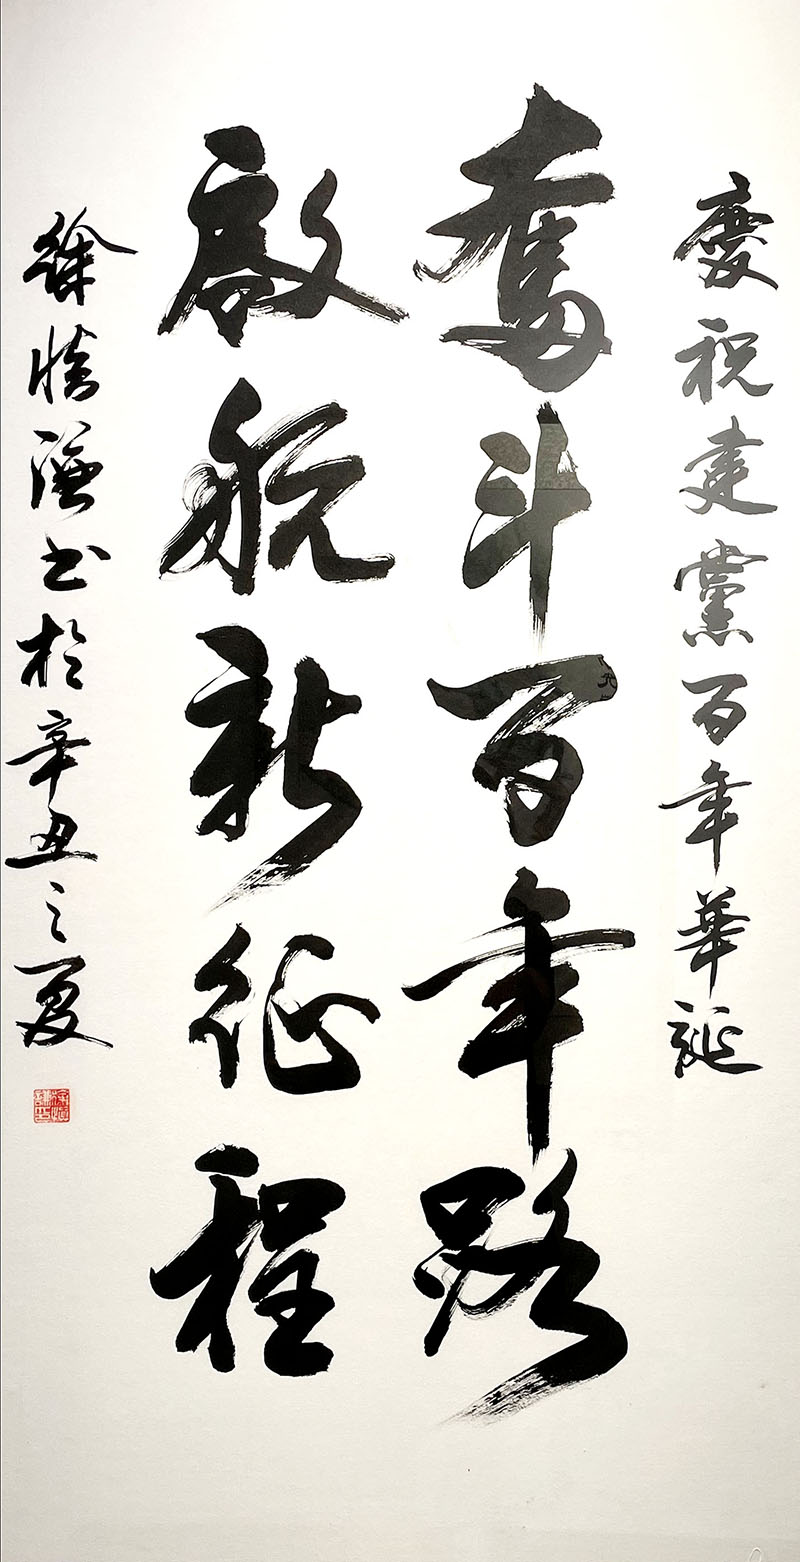 慶祝建黨百年華誕
奮斗百年路
啟航新征程
徐 謙书於辛丑之夏